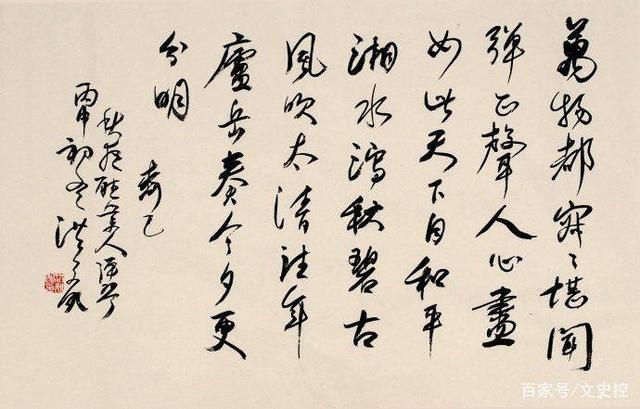 萬物都寂〻堪聞
彈正聲人心盡
如此天下自和平
湘水瀉秋碧古
風吹太清往年
廬岳奏今夕更
分明
齊己
秋夜聽業上人彈琴
丙申初冬洪
百家号/文史控